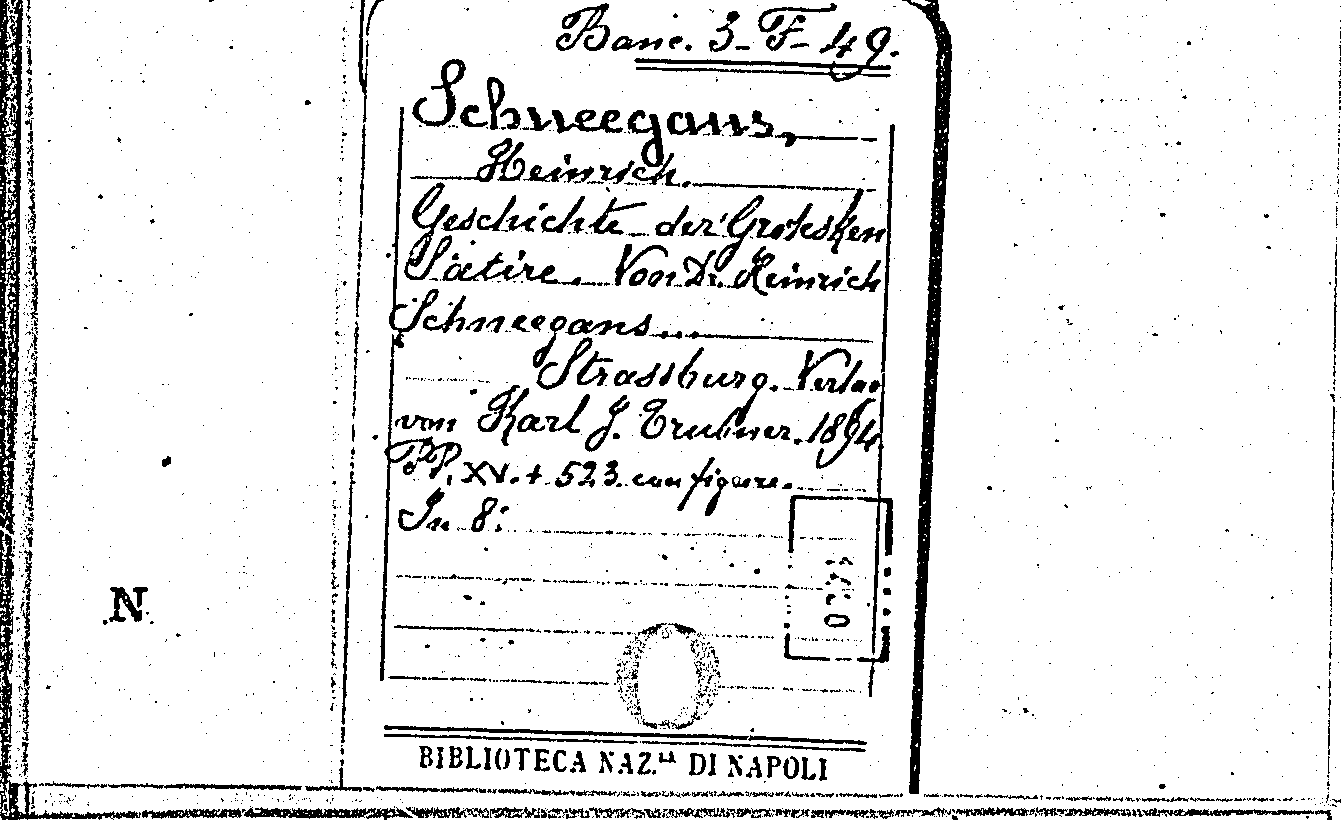 Banc. 3-F-49.
Schneegans,
Heinrich.
Geschichte der Grotesken
Satire. Von Dr. Heinrich
Schneegans...
Strassburg. Verlag
von Karl J. Trubner. 1894
PP. XV. + 523. con figure.
In 8:
N
BIBLIOTECA NAZ.LE DI NAPOLI